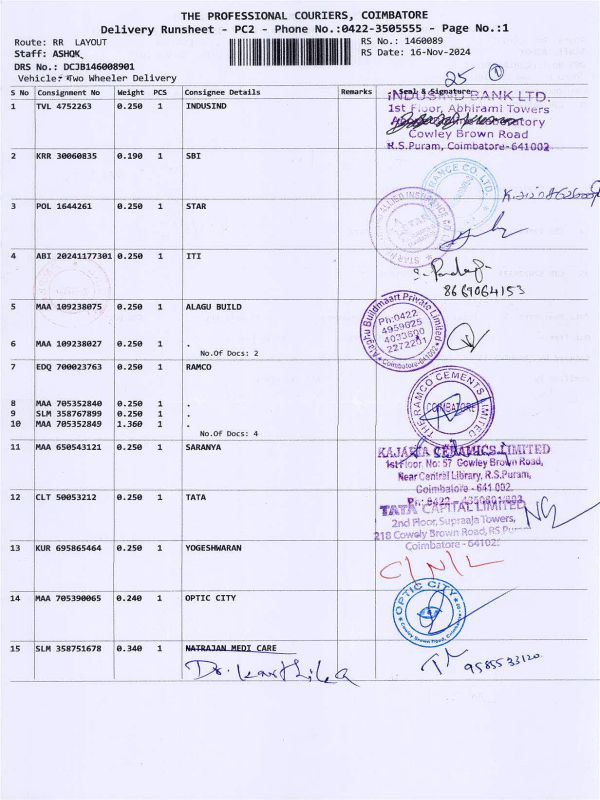 THE PROFESSIONAL COURIERS, COIMBATORE
Delivery Runsheet - PC2 - Phone No.:0422-3505555 - Page No.:1
Route: RR LAYOUT RS No.: 1460089
Staff: ASHOK RS Date: 16-Nov-2024
DRS No.: DCJB146008901
Vehicle: Two Wheeler Delivery
25 1
S No Consignment No Weight PCS Consignee Details Remarks Seal & Signature
1 TVL 4752263 0.250 1 INDUSIND
INDUSIND BANK LTD.
1st Floor, Abhirami Towers
Cowley Brown Road
R.S.Puram, Coimbatore-641002
2 KRR 30060835 0.190 1 SBI
3 POL 1644261 0.250 1 STAR
4 ABI 20241177301 0.250 1 ITI
8669064153
5 MAA 109238075 0.250 1 ALAGU BUILD
Alaghu Buildmaart Private Limited
Ph:0422
4959025
4033600
2272201
Coimbatore-641002
6 MAA 109238027 0.250 1 .
No.Of Docs: 2
7 EDQ 700023763 0.250 1 RAMCO
THE RAMCO CEMENTS LIMITED
COIMBATORE
8 MAA 705352840 0.250 1 .
9 SLM 358767899 0.250 1 .
10 MAA 705352849 1.360 1 .
No.Of Docs: 4
11 MAA 650543121 0.250 1 SARANYA
KAJARIA CERAMICS LIMITED
1st Floor, No: 57 Cowley Brown Road,
Near Central Library, R.S.Puram,
Coimbatore - 641 002.
12 CLT 50053212 0.250 1 TATA
TATA CAPITAL LIMITED
2nd Floor, Supraaja Towers,
218 Cowely Brown Road, RS Puram
Coimbatore - 64102
13 KUR 695865464 0.250 1 YOGESHWARAN
C/N/L
14 MAA 705390065 0.240 1 OPTIC CITY
OPTIC CITY
Cowley Brown Road,
15 SLM 358751678 0.340 1 NATRAJAN MEDI CARE
Dr. Karthika
9585533120